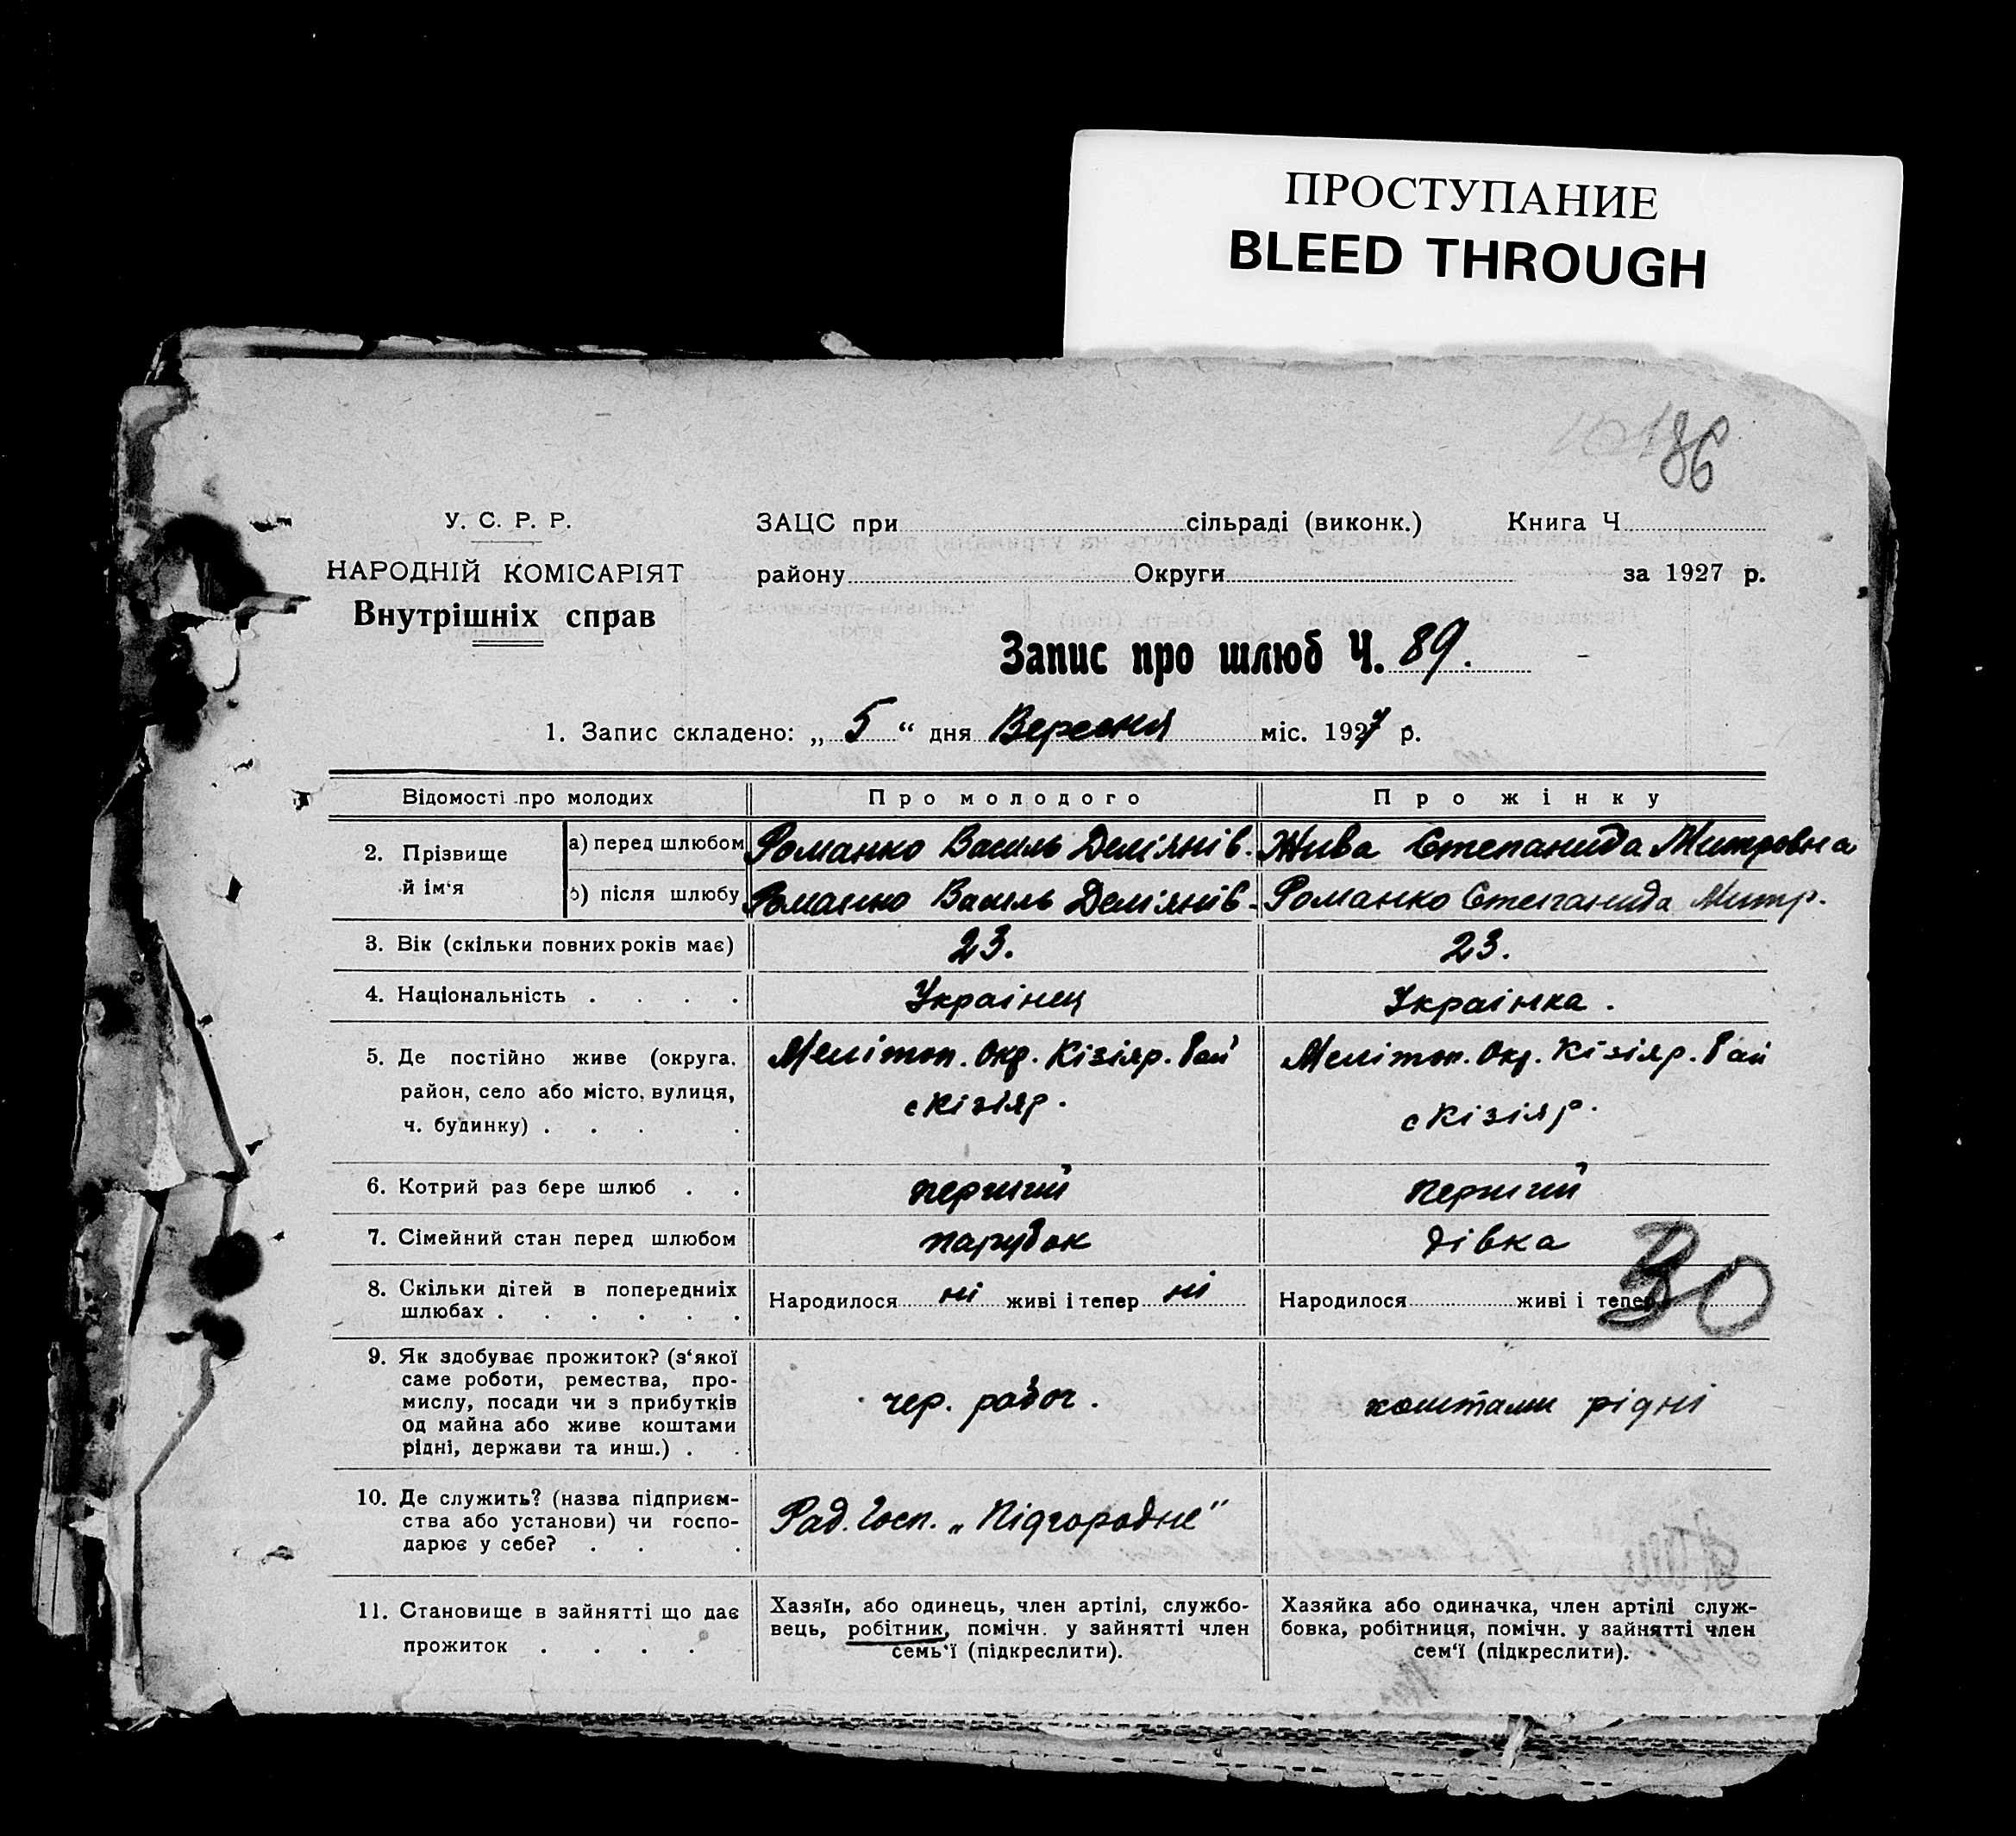 ПРОСТУПАНИЕ
BLEED THROUGH
86
У. С. Р. Р.
НАРОДНІЙ КОМІСАРІЯТ
Внутрішніх справ
ЗАЦС при сільраді (виконк.) Книга Ч
району Округи за 1927 р.
Запис про шлюб Ч. 89.
1. Запис складено: „ 5 “ дня Вересня міс. 1927 р.
Відомості про молодих Про молодого Про жінку
2. Прізвище й ім‘я
а) перед шлюбом Романко Василь Деміянів. Жива Степанида Митровна
б) після шлюбу Романко Василь Деміянів. Романко Степанида Митр.
3. Вік (скільки повних років має) 23. 23.
4. Національність . . . . Українец Українка .
5. Де постійно живе (округа, Мелітоп. Окр. Кізіяр. Рай Мелітоп. Окр. Кізіяр. Рай
район, село або місто, вулиця, с Кізіяр. с Кізіяр.
ч. будинку) . . . .
6. Котрий раз бере шлюб . . перший перший
7. Сімейний стан перед шлюбом парубок дівка
8. Скільки дітей в попередниіх
шлюбах . . . . . .
Народилося ні живі і тепер ні Народилося живі і тепер
ВО
9. Як здобуває прожиток? (з‘якої
саме роботи, ремества, про-
мислу, посади чи з прибутків
од майна або живе коштами
рідні, держави та инш.) . .
чер. рабоч. коштами рідні
10. Де служить? (назва підприєм-
ства або установи) чи госпо-
дарює у себе? . . .
Рад. Госп. „Підгородне"
11. Становище в зайнятті що дає
прожиток . . . .
Хазяїн, або одинець, член артілі, службо-
вець, робітник, помічн. у зайнятті член
семь‘ї (підкреслити).
Хазяйка або одиначка, член артілі служ-
бовка, робітниця, помічн. у зайнятті член
сем‘ї (підкреслити).